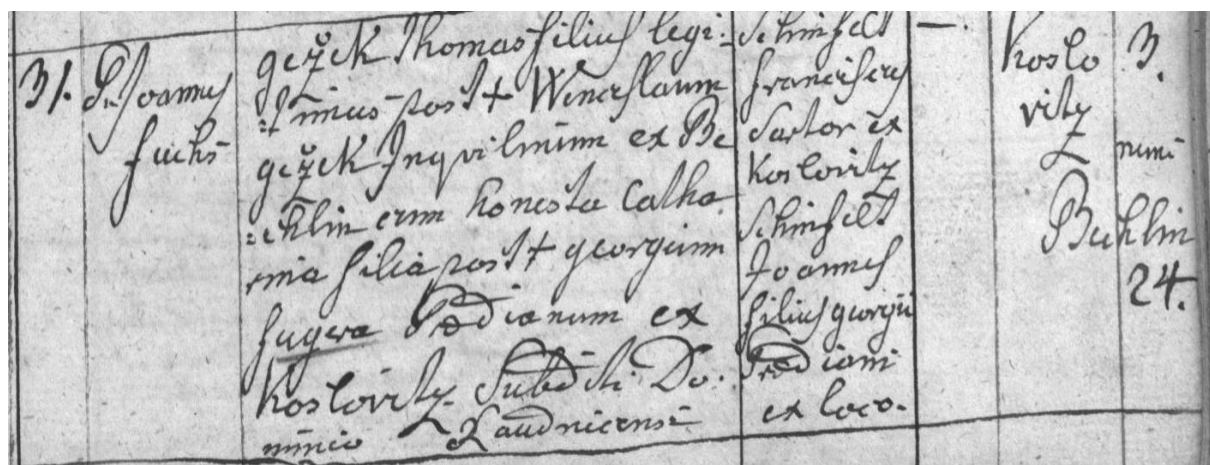 31.
P. Joannes
Fuchs
gežek Thomas filius legi:
:timus post + Wenceslaum
gežek Inquilinum ex Be
:chlin cum honesta Catha
rina filia post + georgium
fugera Prædianum ex
Koslovitz Subditi Do:
minio Raudnicensi
Schinfelt
Franciscus
Sartor ex
Koslovitz
Schinfelt
Joannes
filius georgii
Prædiani
ex loco.
—
Koslo
vitz
3.
nunc
Bechlin
24.